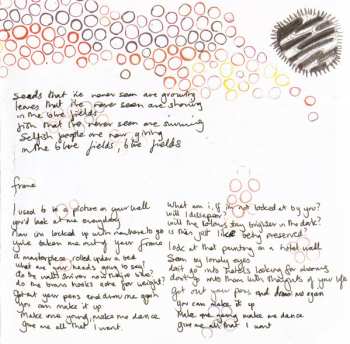 Seeds that i've never seen are growing
leaves that i've never seen are showing
in the blue fields
fish that i've never seen are swimming
Selfish people are now giving
in the blue fields, blue fields
frame
I used to be a picture on your wall
you'd look at me everyday
Now i'm locked up with nowhere to go
you've taken me out of your frame
a masterpiece rolled under a bed
what are your heads going to say?
do the walls shiver now they're bare?
do the brass hooks ache for weight?
Get out your pens and draw me again
you can make it up
Make me young, make me dance
give me all that I want.
What am i, if i'm not looked at by you?
will I disappear?
will the colours stay brighter in the dark?
is this just like being preserved?
Look at that painting on a hotel wall
Seen by lonely eyes
don't go into hotels looking for
don't go into them with thoughts of your life
Get out your pens and draw me again
you can make it up
Make me young make me dance
give me all that I want